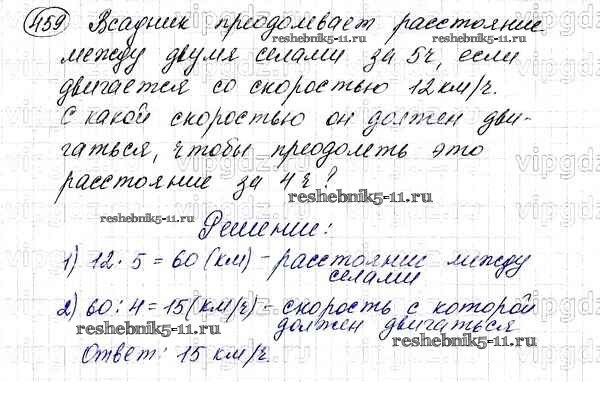 459 Всадник преодолевает расстояние
reshebnik5-11.ru
между двумя селами за 5ч, если
двигается со скоростью 12 км/ч.
С какой скоростью он должен дви-
гаться, чтобы преодолеть это
расстояние за 4ч?
reshebnik5-11.ru
reshebnik5-11.ru
Решение:
1) 12 · 5 = 60 (км) - расстояние между
селами
2) 60 : 4 = 15 (км/ч) - скорость с которой
должен двигаться
reshebnik5-11.ru
reshebnik5-11.ru
Ответ: 15 км/ч.